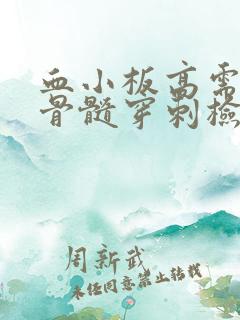 血小板高需
骨髓穿刺检
周新武
未经同意禁止转载